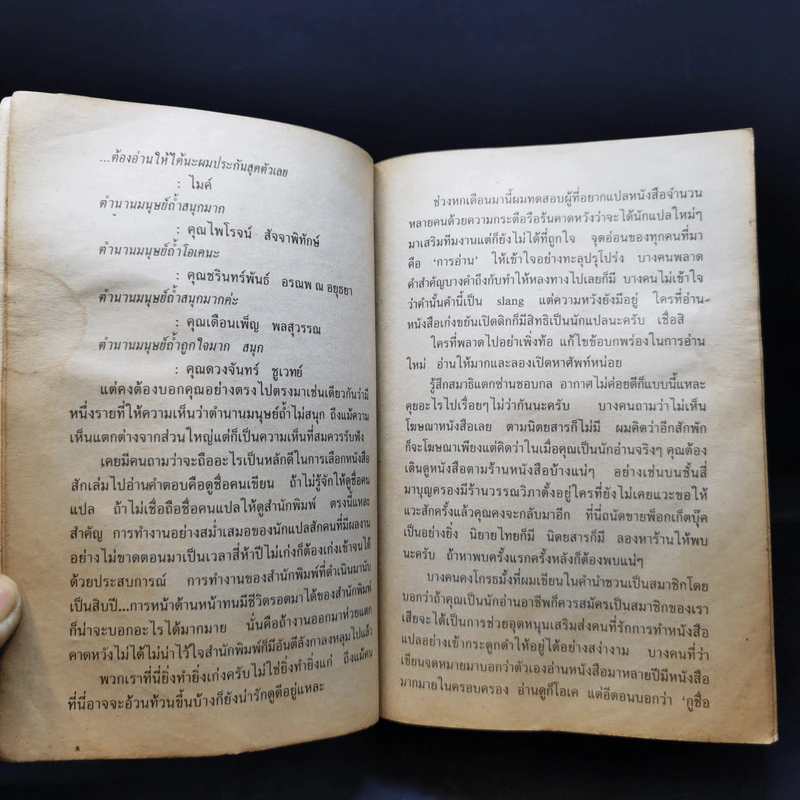 ...ต้องอ่านให้ได้นะผมประกันสุดตัวเลย
: ไมค์
ตำนานมนุษย์ถ้ำสนุกมาก
: คุณไพโรจน์ สัจจาพิทักษ์
ตำนานมนุษย์ถ้ำโอเคนะ
: คุณชรินทร์พันธ์ อรณพ ณ อยุธยา
ตำนานมนุษย์ถ้ำสนุกมากค่ะ
: คุณเดือนเพ็ญ พลสุวรรณ
ตำนานมนุษย์ถ้ำถูกใจมาก สนุก
: คุณดวงจันทร์ ชูเวทย์
แต่คงต้องบอกคุณอย่างตรงไปตรงมาเช่นเดียวกันว่ามี
หนึ่งรายที่ให้ความเห็นว่าตำนานมนุษย์ถ้ำไม่สนุก ถึงแม้ความ
เห็นแตกต่างจากส่วนใหญ่แต่ก็เป็นความเห็นที่สมควรรับฟัง
เคยมีคนถามว่าจะถืออะไรเป็นหลักดีในการเลือกหนังสือ
สักเล่มไปอ่านคำตอบคือดูชื่อคนเขียน ถ้าไม่รู้จักให้ดูชื่อคน
แปล ถ้าไม่เชื่อถือชื่อคนแปลให้ดูสำนักพิมพ์ ตรงนี้แหละ
สำคัญ การทำงานอย่างสม่ำเสมอของนักแปลสักคนที่มีผลงาน
อย่างไม่ขาดตอนมาเป็นเวลาสี่ห้าปีไม่เก่งก็ต้องเก่งเข้าจนได้
ด้วยประสบการณ์ การทำงานของสำนักพิมพ์ที่ดำเนินมานับ
เป็นสิบปี...การหน้าด้านหน้าทนมีชีวิตรอดมาได้ของสำนักพิมพ์
ก็น่าจะบอกอะไรได้มากมาย นั่นคือถ้างานออกมาห่วยแตก
คาดหวังไม่ได้ไม่น่าไว้ใจสำนักพิมพ์ก็มีอันตีลังกาลงหลุมไปแล้ว
พวกเราที่นี่ยิ่งทำยิ่งเก่งครับไม่ใช่ยิ่งทำยิ่งแก่ ถึงแม้คน
ที่นี่อาจจะอ้วนท้วนขึ้นบ้างก็ยังน่ารักดูดีอยู่แหละ
ช่วงหกเดือนมานี้ผมทดสอบผู้ที่อยากแปลหนังสือจำนวน
หลายคนด้วยความกระตือรือร้นคาดหวังว่าจะได้นักแปลใหม่ๆ
มาเสริมทีมงานแต่ก็ยังไม่ได้ที่ถูกใจ จุดอ่อนของทุกคนที่มา
คือ 'การอ่าน' ให้เข้าใจอย่างทะลุปรุโปร่ง บางคนพลาด
คำสำคัญบางคำถึงกับทำให้หลงทางไปเลยก็มี บางคนไม่เข้าใจ
ว่าคำนั้นคำนี้เป็น slang แต่ความหวังยังมีอยู่ ใครที่อ่าน
หนังสือเก่งขยันเปิดดิกก็มีสิทธิเป็นนักแปลนะครับ เชื่อสิ
ใครที่พลาดไปอย่าเพิ่งท้อ แก้ไขข้อบกพร่องในการอ่าน
ใหม่ อ่านให้มากและลองเปิดหาศัพท์หน่อย
รู้สึกสมาธิแตกซ่านชอบกล อากาศไม่ค่อยดีก็แบบนี้แหละ
คุยอะไรไปเรื่อยๆไม่ว่ากันนะครับ บางคนถามว่าไม่เห็น
โฆษณาหนังสือเลย ตามนิตยสารก็ไม่มี ผมคิดว่าอีกสักพัก
ก็จะโฆษณาเพียงแต่คิดว่าในเมื่อคุณเป็นนักอ่านจริงๆ คุณต้อง
เดินดูหนังสือตามร้านหนังสือบ้างแน่ๆ อย่างเช่นบนชั้นสี่
มาบุญครองมีร้านวรรณวิภาตั้งอยู่ใครที่ยังไม่เคยแวะขอให้
แวะสักครั้งแล้วคุณคงจะกลับมาอีก ที่นี่ถนัดขายพ็อกเก็ตบุ๊ค
เป็นอย่างยิ่ง นิยายไทยก็มี นิตยสารก็มี ลองหาร้านให้พบ
นะครับ ถ้าหาพบครั้งแรกครั้งหลังก็ต้องพบแน่ๆ
บางคนคงโกรธมั้งที่ผมเขียนในคำนำชวนเป็นสมาชิกโดย
บอกว่าถ้าคุณเป็นนักอ่านอาชีพก็ควรสมัครเป็นสมาชิกของเรา
เสียจะได้เป็นการช่วยอุดหนุนเสริมส่งคนที่รักการทำหนังสือ
แปลอย่างเข้ากระดูกดำให้อยู่ได้อย่างสง่างาม บางคนที่ว่า
เขียนจดหมายมาบอกว่าตัวเองอ่านหนังสือมาหลายปีมีหนังสือ
มากมายในครอบครอง อ่านดูก็โอเค แต่อีตอนบอกว่า 'กูซื้อ